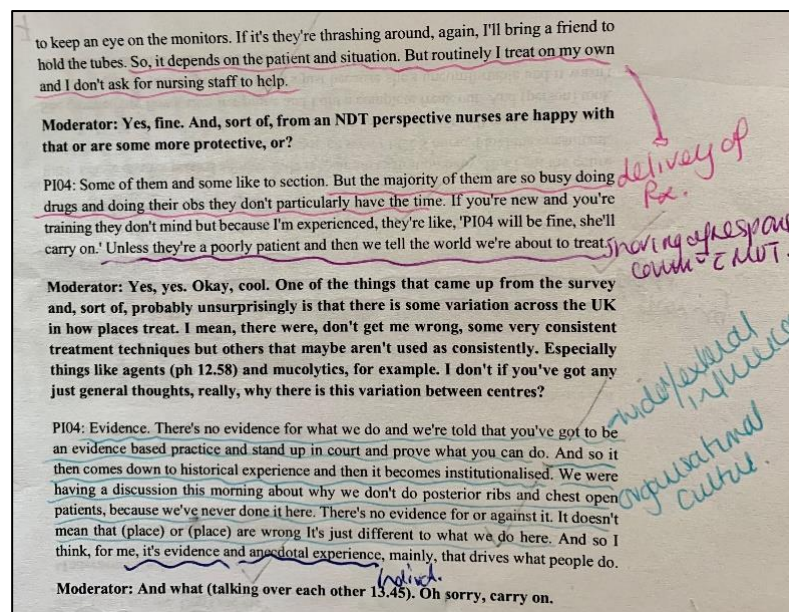 to keep an eye on the monitors. If it's they're thrashing around, again, I'll bring a friend to
hold the tubes. So, it depends on the patient and situation. But routinely I treat on my own
and I don't ask for nursing staff to help.
Moderator: Yes, fine. And, sort of, from an NDT perspective nurses are happy with
that or are some more protective, or?
PI04: Some of them and some like to section. But the majority of them are so busy doing
drugs and doing their obs they don't particularly have the time. If you're new and you're
training they don't mind but because I'm experienced, they're like, 'PI04 will be fine, she'll
carry on.' Unless they're a poorly patient and then we tell the world we're about to treat.
delivery of
Rx.
sharing of respons
MDT.
Moderator: Yes, yes. Okay, cool. One of the things that came up from the survey
and, sort of, probably unsurprisingly is that there is some variation across the UK
in how places treat. I mean, there were, don't get me wrong, some very consistent
treatment techniques but others that maybe aren't used as consistently. Especially
things like agents (ph 12.58) and mucolytics, for example. I don't if you've got any
just general thoughts, really, why there is this variation between centres?
PI04: Evidence. There's no evidence for what we do and we're told that you've got to be
an evidence based practice and stand up in court and prove what you can do. And so it
then comes down to historical experience and then it becomes institutionalised. We were
having a discussion this morning about why we don't do posterior ribs and chest open
patients, because we've never done it here. There's no evidence for or against it. It doesn't
mean that (place) or (place) are wrong It's just different to what we do here. And so I
think, for me, it's evidence and anecdotal experience, mainly, that drives what people do.
wider/external
influence
organisational
culture.
Individ.
Moderator: And what (talking over each other 13.45). Oh sorry, carry on.